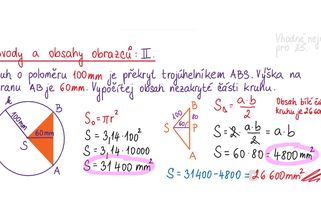 Vhodné nej
pro ZŠ.
vody a obsahy obrazců: II.
uh o poloměru 100mm je překryt trojúhelníkem ABS. Výška na
ranu AB je 60mm. Vypočítej obsah nezakryté části kruhu.
k
B
100mm
60mm
S
A
S₀ = πr²
S = 3,14·100²
S = 3,14·10000
S = 31 400 mm²
B
100
80
S
60
P
A
S△ = a·b / 2
S = 2·a·b / 2 = a·b
S = 60·80 = 4800 mm²
Obsah bílé čá
kruhu je 26 60
S = 31400-4800 = 26 600 mm²